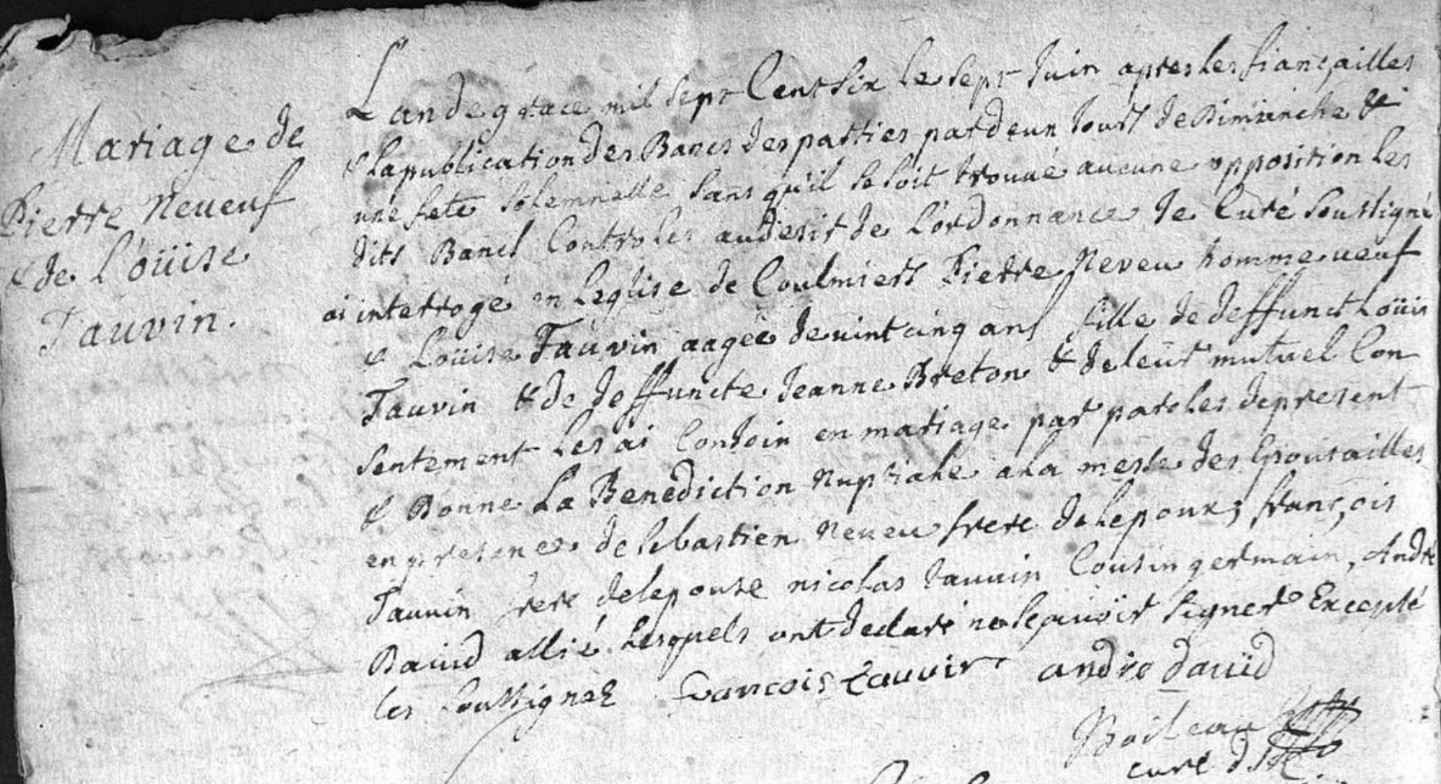 Mariage de
Pierre Neveuf
& de Loüise
Tauvin.
L an de grace mil sept Cent six le sept Juin apres les fiançailles
& la publication des Bancs des parties par deux Jours de Dimanche &
une fete solemnelle sans qu'il se soit trouué aucune opposition les
dits Bancs Controles au desir de l'ordonnance Je Curé soussigné
ai interrogé en l'eglise de Coulmiers Pierre Neveu homme veuf
& Loüise Tauvin aagée de vint cinq ans fille de deffunct Loüis
Tauvin & de deffuncte Jeanne Breton & de leur mutuel Con
sentement les ai Conjoin en mariage par paroles de present
& Donné La Benediction Nuptiale a la messe des Epousailles
en presence de Sebastien Neveu frere de lepoux; françois
Tauvin frere de lepouse nicolas Tauvin Cousin germain, André
David allié lesquels ont declaré ne sçavoir signer Excepté
les soussignez françois tauvin andre dauid
Boileau
curé